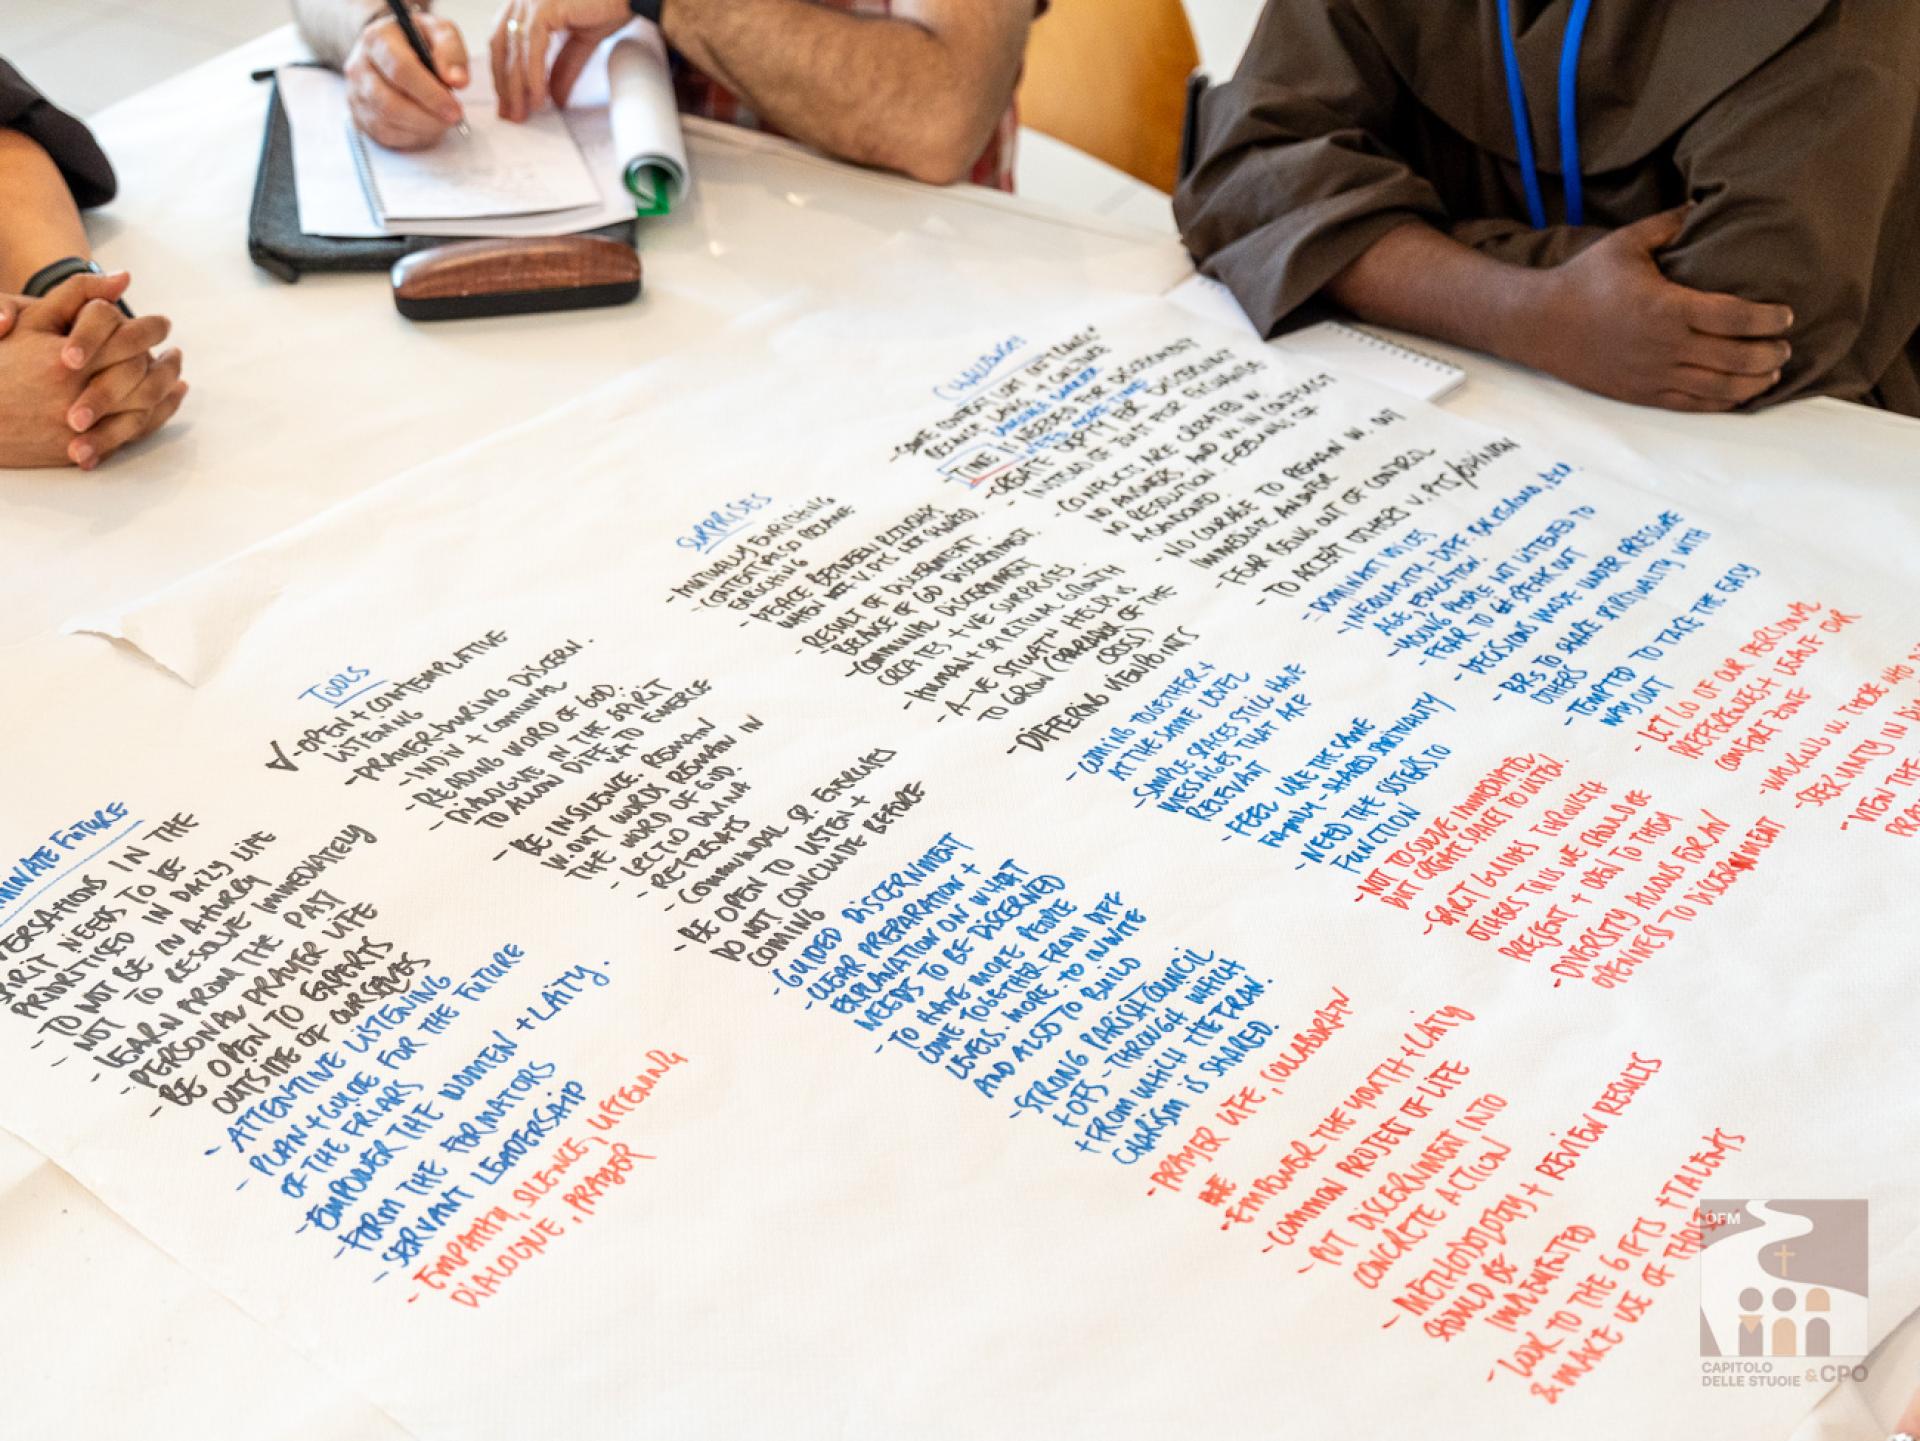 CHALLENGES
BECAUSE LANG. + CULTURE
LANGUAGE BARRIER
TIME IS NEEDED FOR DISCERNMENT
NEED MORE TIME
- CREATE DEPTH FOR DISCERNMENT
INSTEAD OF JUST FOR EXCHANGE
- CONFLICTS ARE CREATED W.
NO ANSWERS AND
NO RESOLUTION, FEELINGS OF
ABANDONED
- NO COURAGE TO REMAIN W. OUT
IMMEDIATE ANSWER
- FEAR BEING OUT OF CONTROL
- TO ACCEPT OTHERS V.PTS/OPINION
- DOMINANT VOICES
- INEQUALITY - DIFF. BACKGROUND,
AGE, EDUCATION
- YOUNG PEOPLE NOT LISTENED TO
- FEAR TO SPEAK OUT
- DECISIONS MADE UNDER PRESSURE
- BRS TO SHARE SPIRITUALITY WITH
OTHERS
- TEMPTED TO TAKE THE EASY
WAY OUT
- LET GO OF OUR PERSONAL
PREFERENCES + LEAVE OUR
COMFORT ZONE
- WALKING W. THOSE WHO
- SEEK UNITY IN
- VIEW THE
SURPRISES
- MUTUALLY ENRICHING
- CONTENT ALSO BECAME
ENRICHING
- PEACE BETWEEN RELATIONSHIPS
WHEN DIFF V.PTS ARE SHARED
- RESULT OF DISCERNMENT
BECAUSE OF GD DISCERNMENT
- COMMUNAL DISCERNMENT
CREATES +VE SURPRISES
- HUMAN + SPIRITUAL GROWTH
- A -VE SITUATN HELPS US
TO GROW (PARADOX OF THE
CROSS)
- DIFFERING VIEWPOINTS
- COMING TOGETHER +
AT THE SAME LEVEL
- SIMPLE SPACES STILL HAVE
MESSAGES THAT ARE
RELEVANT
- FEEL LIKE THE SAME
FAMILY - SHARED SPIRITUALITY
- NEED THE SISTERS TO
FUNCTION
- NOT TO SOLVE IMMEDIATELY
BUT CREATE SPACES TO LISTEN.
- SPIRIT GUIDES THROUGH
OTHERS THUS WE SHOULD BE
PRESENT + OPEN TO THEM
- DIVERSITY ALLOWS FOR AN
OPENNESS TO DISCERNMENT
TOOLS
- OPEN + CONTEMPLATIVE
LISTENING
- PRAYER - DURING DISCERN.
- INDIV + COMMUNAL
- READING WORD OF GOD.
- DIALOGUE IN THE SPIRIT
TO ALLOW DIFF. TO EMERGE
- BE IN SILENCE. REMAIN
W.OUT WORDS REMAIN IN
THE WORD OF GOD.
- LECTIO DIVINA
- RETREATS
- COMMUNAL SP. EXERCISES
- BE OPEN TO LISTEN +
DO NOT CONCLUDE BEFORE
COMING
- GUIDED DISCERNMENT
- CLEAR PREPARATION +
EXPLANATION ON WHAT
NEEDS TO BE DISCERNED
- TO HAVE MORE PEOPLE
COME TOGETHER FROM DIFF
LEVELS. MORE - TO INVITE
AND ALSO TO BUILD
- STRONG PARISH COUNCIL
+ OFS - THROUGH WHICH
+ FROM WHICH THE FRAN.
CHARISM IS SHARED.
- PRAYER LIFE, COLLABORATN
- EMPOWER THE YOUTH + LAITY
- COMMON PROJECT OF LIFE
- PUT DISCERNMENT INTO
CONCRETE ACTION
- METHODOLOGY + REVIEW RESULTS
SHOULD BE
IMPLEMENTED
- LOOK TO THE GIFTS + TALENTS
& MAKE USE OF THOSE
MINATE FUTURE
VERSATIONS IN THE
SPIRIT NEEDS TO BE
PRIORITISED IN DAILY LIFE
- TO NOT BE IN A HURRY
- NOT TO RESOLVE IMMEDIATELY
- LEARN FROM THE PAST
- PERSONAL PRAYER LIFE
- BE OPEN TO EXPERTS
OUTSIDE OF OURSELVES
- ATTENTIVE LISTENING
- PLAN + GUIDE FOR THE FUTURE
OF THE FRIARS
- EMPOWER THE WOMEN + LAITY.
- FORM THE FORMATORS
- SERVANT LEADERSHIP
- EMPATHY, SILENCE, LISTENING
DIALOGUE, PRAYER
OFM
CAPITOLO
DELLE STUOIE & CPO